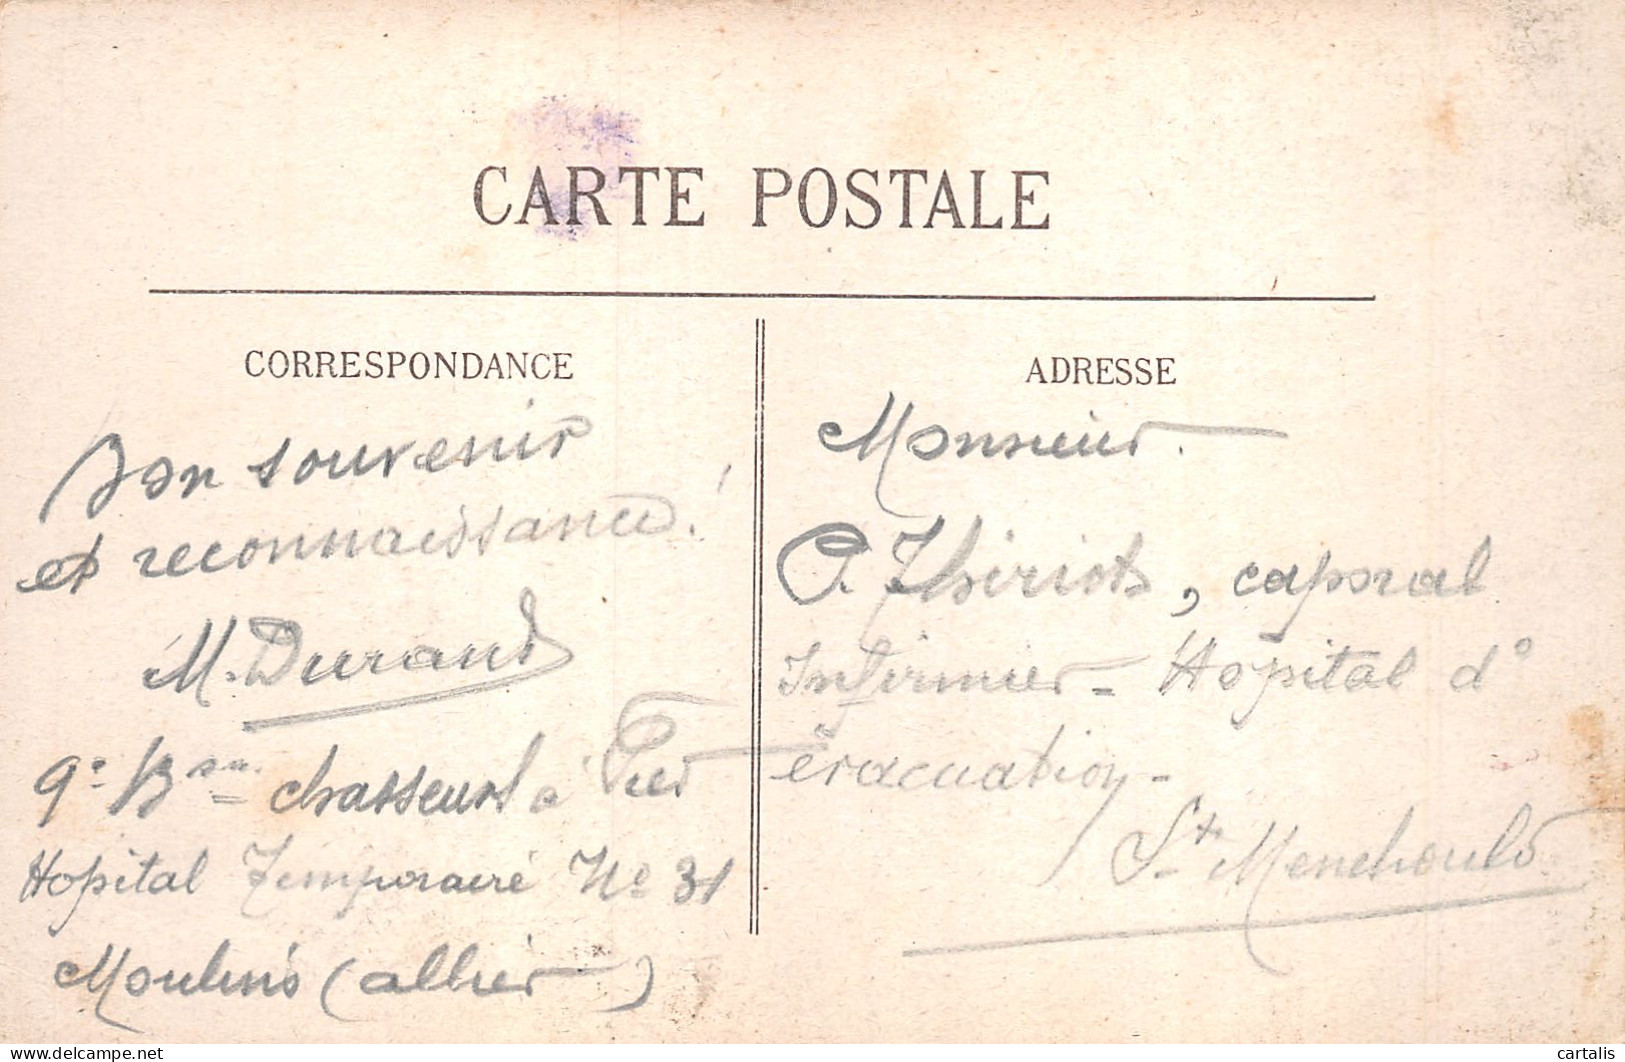 CARTE POSTALE
CORRESPONDANCE
Bon souvenir
et reconnaissance!
M. Durand
9e Bon chasseurs à Pied
Hopital Temporaire No 31
Moulins (allier)
ADRESSE
Monsieur
P. Thiriot, caporal
Infirmier - Hopital d'
évacuation -
Ste Menehould
delcampe.net
cartalis